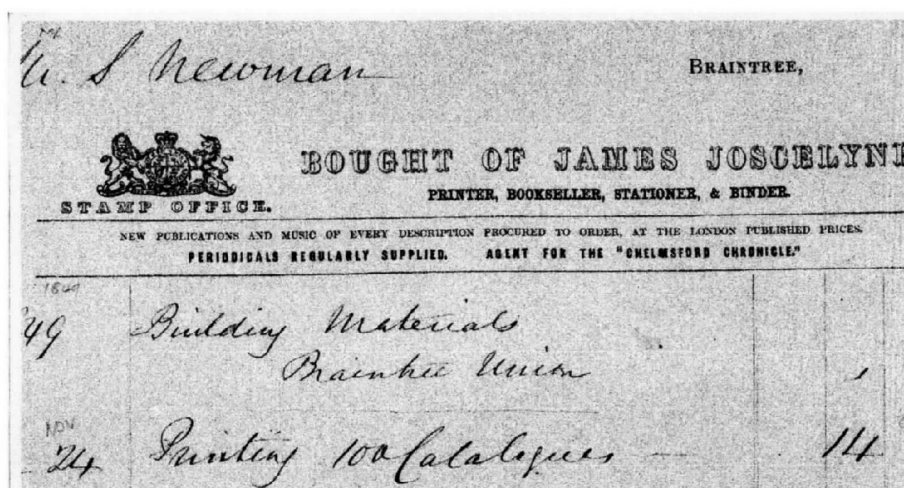 Mr. S Newman
BRAINTREE,
BOUGHT OF JAMES JOSCELYNE
STAMP OFFICE.
PRINTER, BOOKSELLER, STATIONER, & BINDER.
NEW PUBLICATIONS AND MUSIC OF EVERY DESCRIPTION PROCURED TO ORDER, AT THE LONDON PUBLISHED PRICES.
PERIODICALS REGULARLY SUPPLIED. AGENT FOR THE "CHELMSFORD CHRONICLE."
1849
49 Building Materials
Braintree Union
NOV
24 Printing 100 Catalogues 14